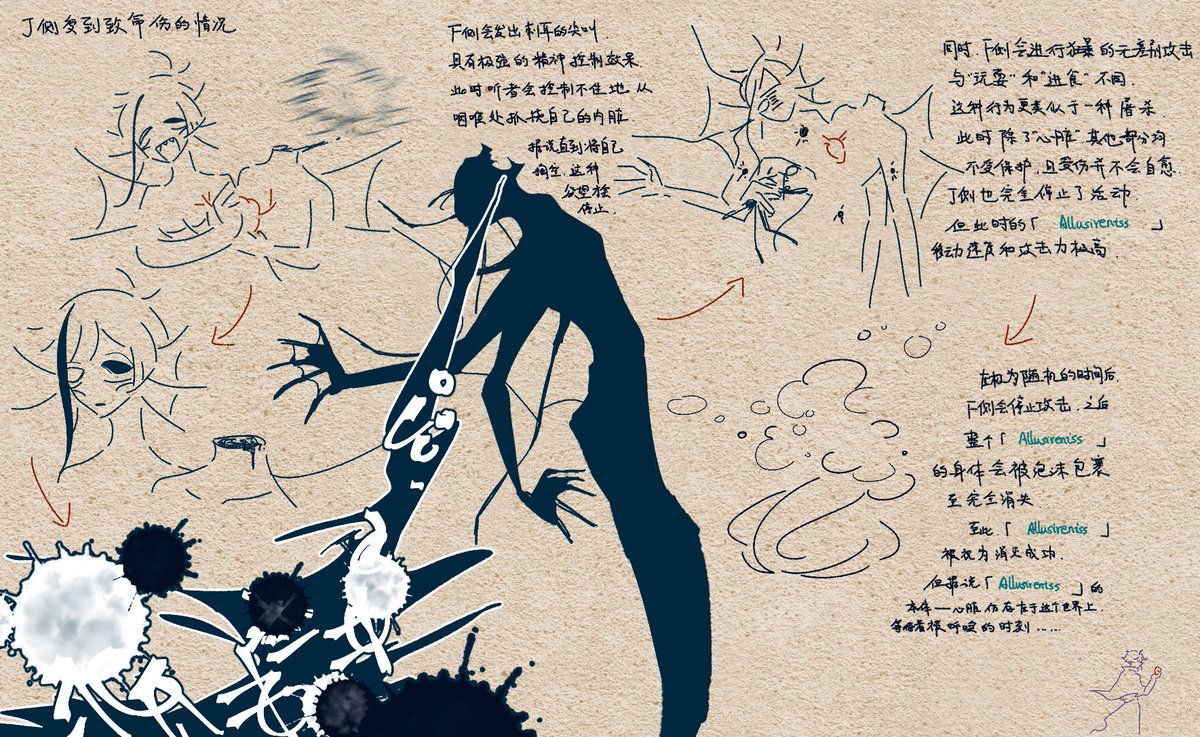 J侧受到致命伤的情况
F侧会发出刺耳的尖叫.
具有极强的精神控制效果
此时听者会控制不住地从
咽喉处抓挠自己的内脏.
据说直到将自己
掏空.这种
欲望才
停止.
同时.F侧会进行狂暴的无差别攻击
与“玩耍”和“进食”不同.
这种行为更类似于一种屠杀.
此时除了“心脏”其他部分均
不受保护.且受伤并不会自愈.
J侧也完全停止了活动.
但此时的「Allusireniss」
移动速度和攻击力极高.
在极为随机的时间后.
F侧会停止攻击.之后
整个「Allusireniss」
的身体会被泡沫包裹
至完全消失
至此「Allusireniss」
被视为消灭成功.
但据说「Allusireniss」的
本体——心脏仍存在于这个世界上.
等待着被呼唤的时刻……